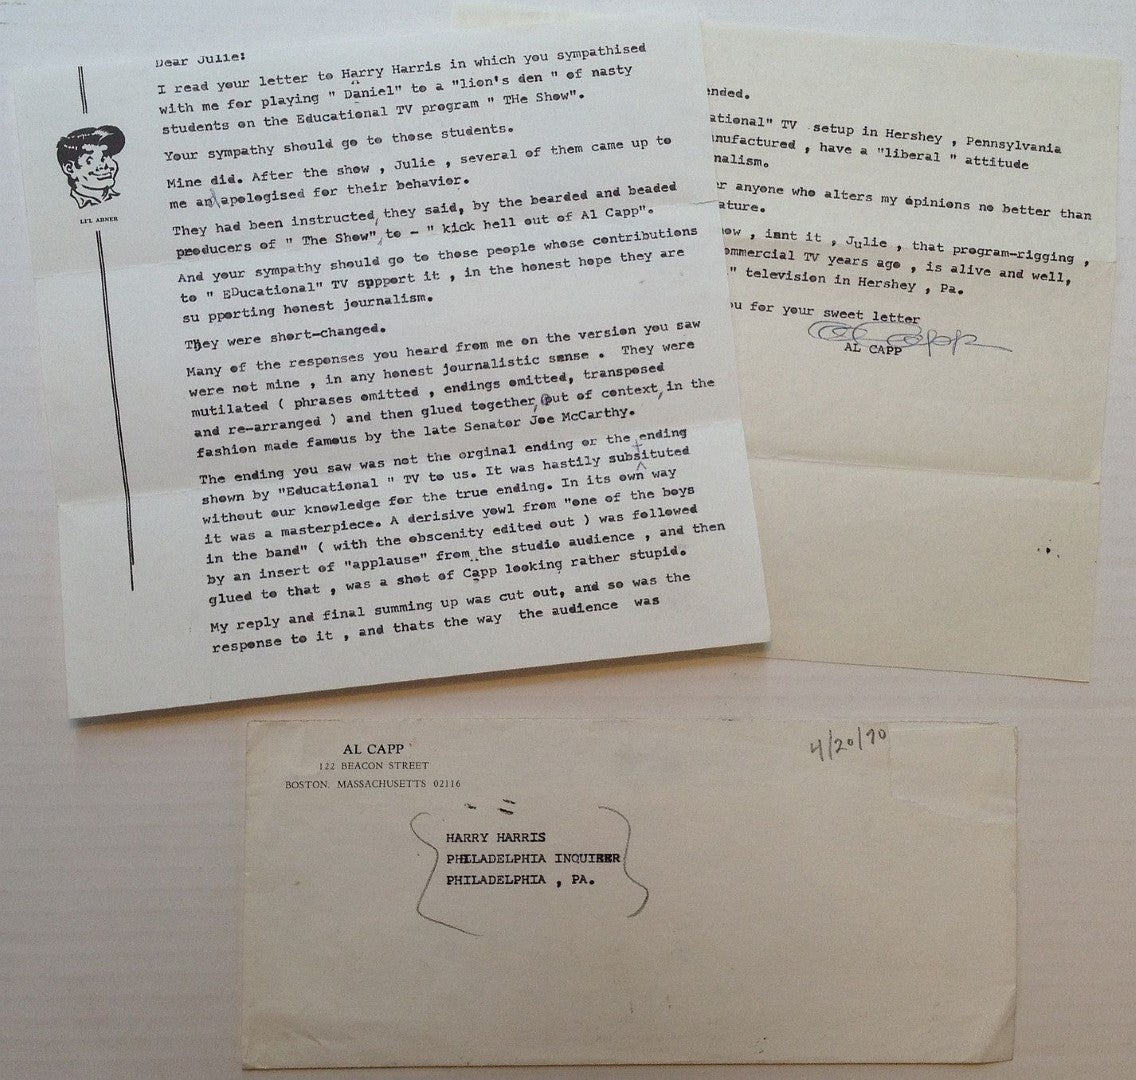 Dear Julie:
I read your letter to Harry Harris in which you sympathised
with me for playing " Daniel" to a "lion's den " of nasty
students on the Educational TV program " THe Show".
Your sympathy should go to those students.
Mine did. After the show , Julie , several of them came up to
me an apologised for their behavior.
They had been instructed, they said, by the bearded and beaded
producers of " The Show", to - " kick hell out of Al Capp".
And your sympathy should go to those people whose contributions
to " EDucational" TV support it , in the honest hope they are
su pporting honest journalism.
They were short-changed.
Many of the responses you heard from me on the version you saw
were not mine , in any honest journalistic sense . They were
mutilated ( phrases omitted , endings omitted, transposed
and re-arranged ) and then glued together, out of context, in the
fashion made famous by the late Senator Joe McCarthy.
The ending you saw was not the orginal ending or the ending
shown by "Educational " TV to us. It was hastily subsituted
without our knowledge for the true ending. In its own way
it was a masterpiece. A derisive yowl from "one of the boys
in the band" ( with the obscenity edited out ) was followed
by an insert of "applause" from the studio audience , and then
glued to that , was a shot of Capp looking rather stupid.
My reply and final summing up was cut out, and so was the
response to it , and thats the way the audience was
LI'L ABNER
ended.
ational" TV setup in Hershey , Pennsylvania
nufactured , have a "liberal " attitude
nalism.
r anyone who alters my opinions no better than
ature.
ow , isnt it , Julie , that program-rigging ,
ommercial TV years ago , is alive and well,
" television in Hershey , Pa.
ou for your sweet letter
Al Capp
AL CAPP
AL CAPP
122 BEACON STREET
BOSTON, MASSACHUSETTS 02116
4/20/70
HARRY HARRIS
PHILADELPHIA INQUIRER
PHILADELPHIA , PA.